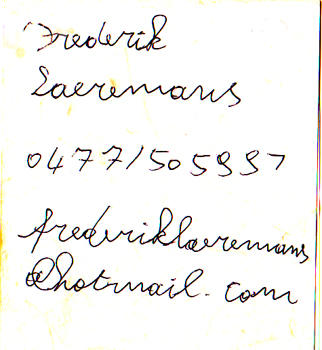 Frederik
Laeremans
0477/505997
frederiklaeremans
@hotmail.com